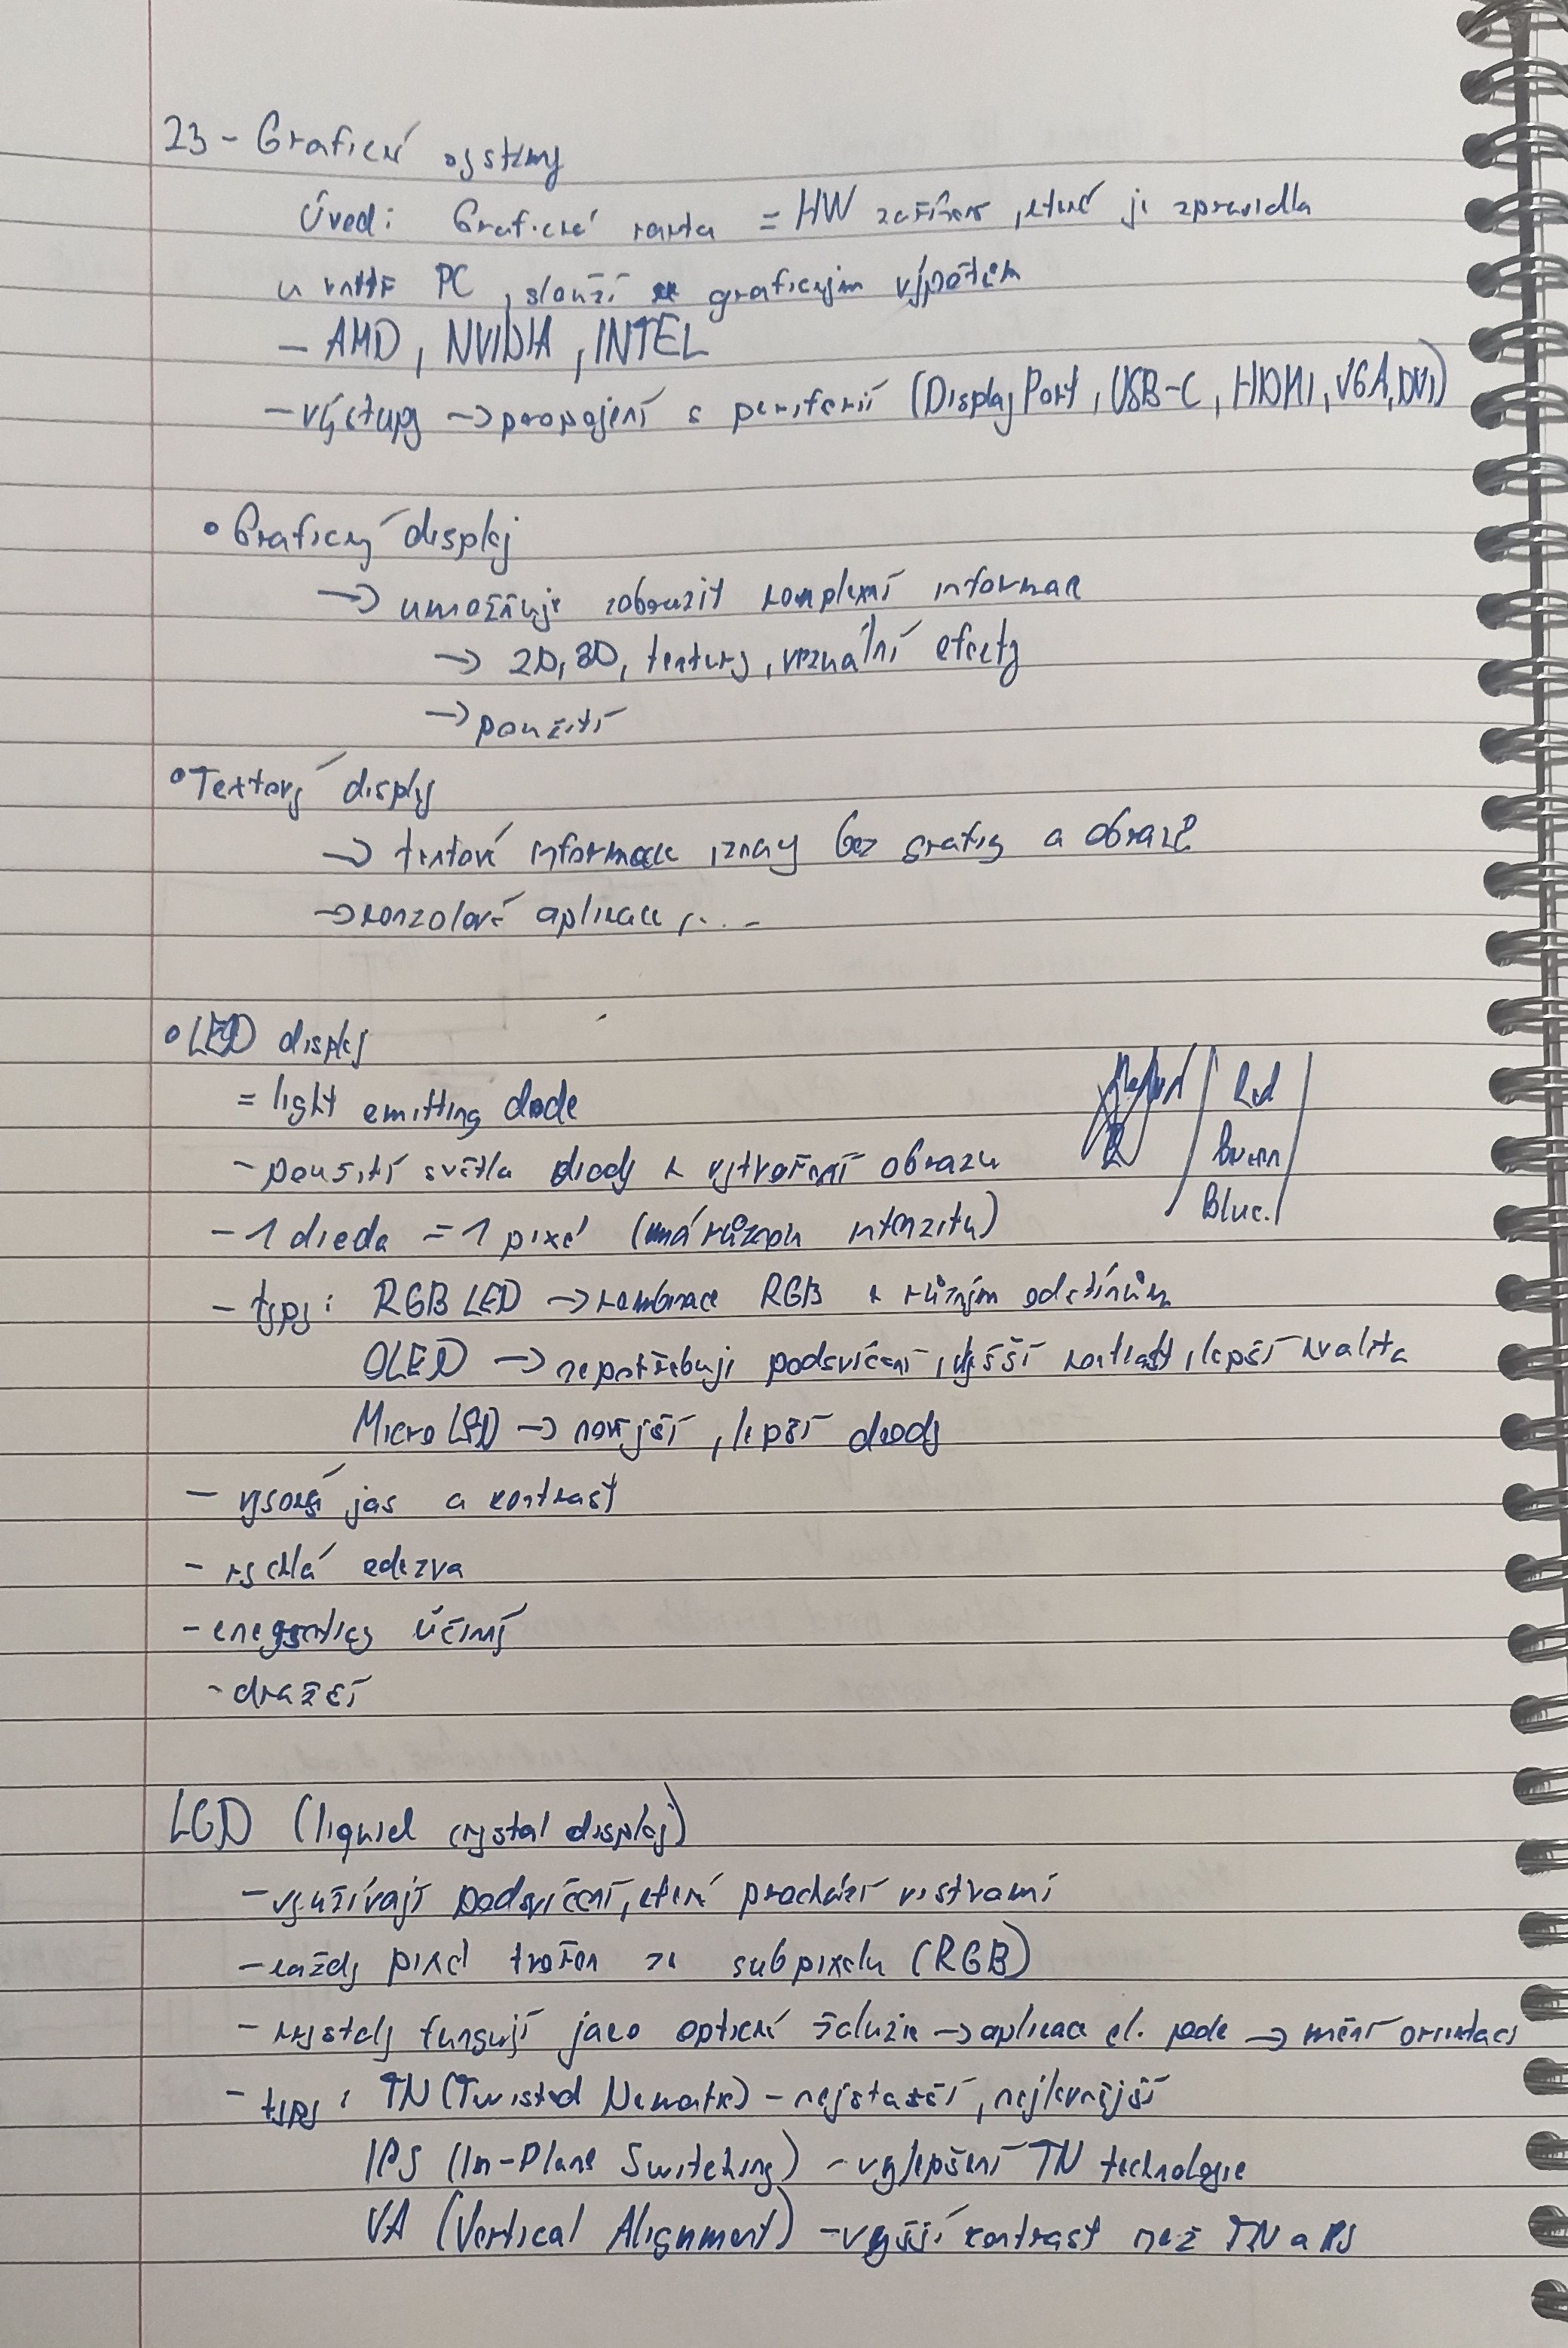 23 - Grafické systémy
Úvod: Grafická karta = HW zařízení, které je zpravidla
uvnitř PC, slouží k grafickým výpočtům
- AMD, NVIDIA, INTEL
- výstupy → propojení s periferií (Display Port, USB-C, HDMI, VGA, DVI)
• Grafický displej
→ umožňuje zobrazit komplexní informace
→ 2D, 3D, textury, vizuální efekty
→ použití
• Textový displej
→ textové informace, znaky bez grafiky a obrazů
→ konzolové aplikace, ...
• LED displej
= light emitting diode
- použití světla diody k vytvoření obrazu
- 1 dioda = 1 pixel (má různou intenzitu)
Red
Green
Blue.
- typy: RGB LED → kombinace RGB k různým odstínům
OLED → nepotřebují podsvícení, vyšší kontrast, lepší kvalita
Micro LED → novější, lepší diody
- vysoký jas a kontrast
- rychlá odezva
- energeticky účinný
- dražší
LCD (liquid crystal display)
- využívají podsvícení, které prochází vrstvami
- každý pixel tvořen ze subpixelu (RGB)
- krystaly fungují jako optické žaluzie → aplikace el. pole → mění orientaci
- typy: TN (Twisted Nematic) - nejstarší, nejlevnější
IPS (In-Plane Switching) - vylepšení TN technologie
VA (Vertical Alignment) - vyšší kontrast než TN a IPS